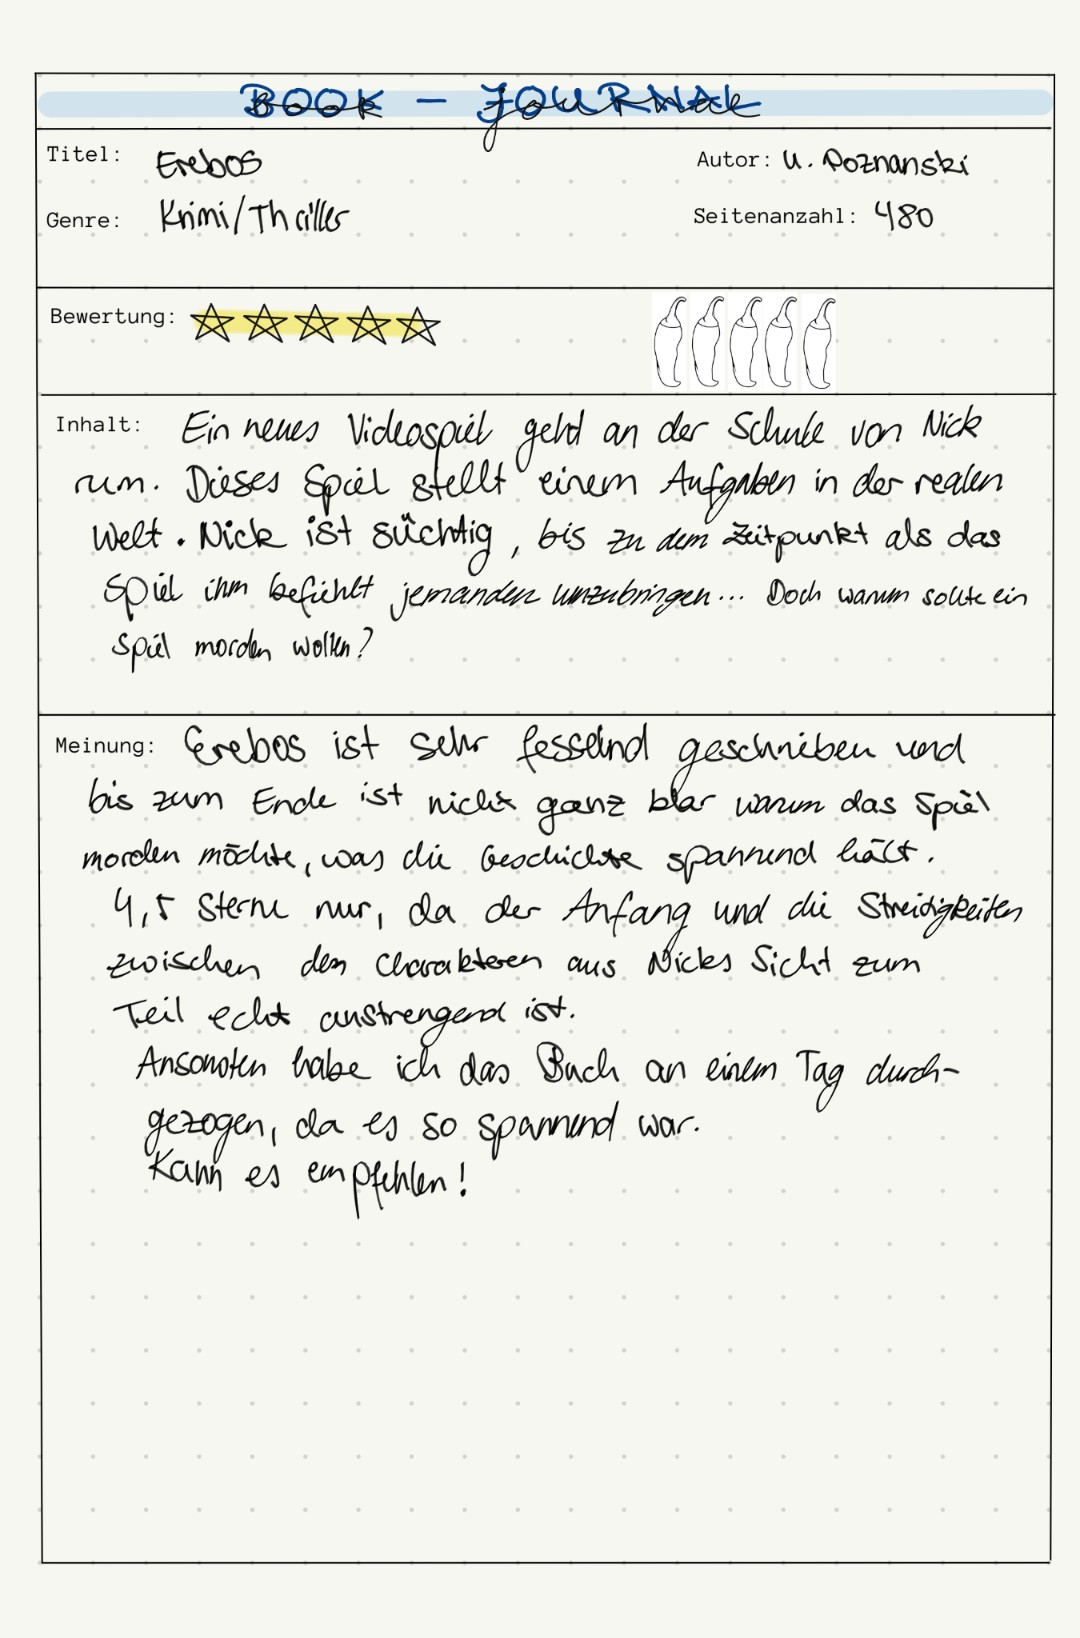 BOOK - JOURNAL
Titel: Erebos
Autor: U. Poznanski
Genre: Krimi/Thriller
Seitenanzahl: 480
Bewertung:
Inhalt: Ein neues Videospiel geht an der Schule von Nick
rum. Dieses Spiel stellt einem Aufgaben in der realen
Welt. Nick ist süchtig, bis zu dem Zeitpunkt als das
Spiel ihm befiehlt jemanden umzubringen... Doch warum sollte ein
Spiel morden wollen?
Meinung: Erebos ist sehr fesselnd geschrieben und
bis zum Ende ist nicht ganz klar warum das Spiel
morden möchte, was die Geschichte spannend hält.
4,5 Sterne nur, da der Anfang und die Streitigkeiten
zwischen den Charakteren aus Nicks Sicht zum
Teil echt anstrengend ist.
Ansonsten habe ich das Buch an einem Tag durch-
gezogen, da es so spannend war.
Kann es empfehlen!